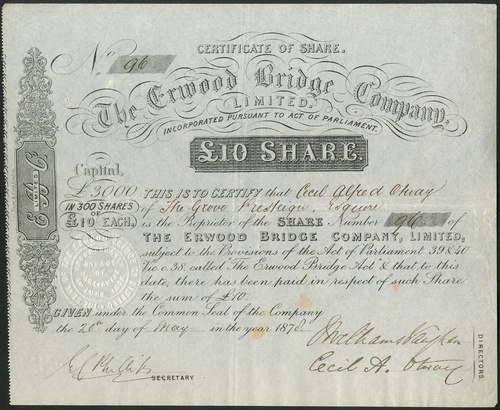 CERTIFICATE OF SHARE.
No. 96
The Erwood Bridge Company,
LIMITED.
INCORPORATED PURSUANT TO ACT OF PARLIAMENT.
£10 SHARE.
Capital,
£3000
IN 300 SHARES
OF
£10 EACH.
THIS IS TO CERTIFY that Cecil Alfred Otway
of The Grove Presteign, Esquire
is the Proprietor of the SHARE Number 96 of
THE ERWOOD BRIDGE COMPANY, LIMITED,
subject to the Provisions of the Act of Parliament 39 & 40
Vic. c. 38, called "The Erwood Bridge Act" & that to this
date, there has been paid in respect of such Share
the sum of £10.
GIVEN under the Common Seal of the Company
the 20th day of May in the year 1878
Cecil A. Otway
DIRECTORS.
SECRETARY
LIMITED